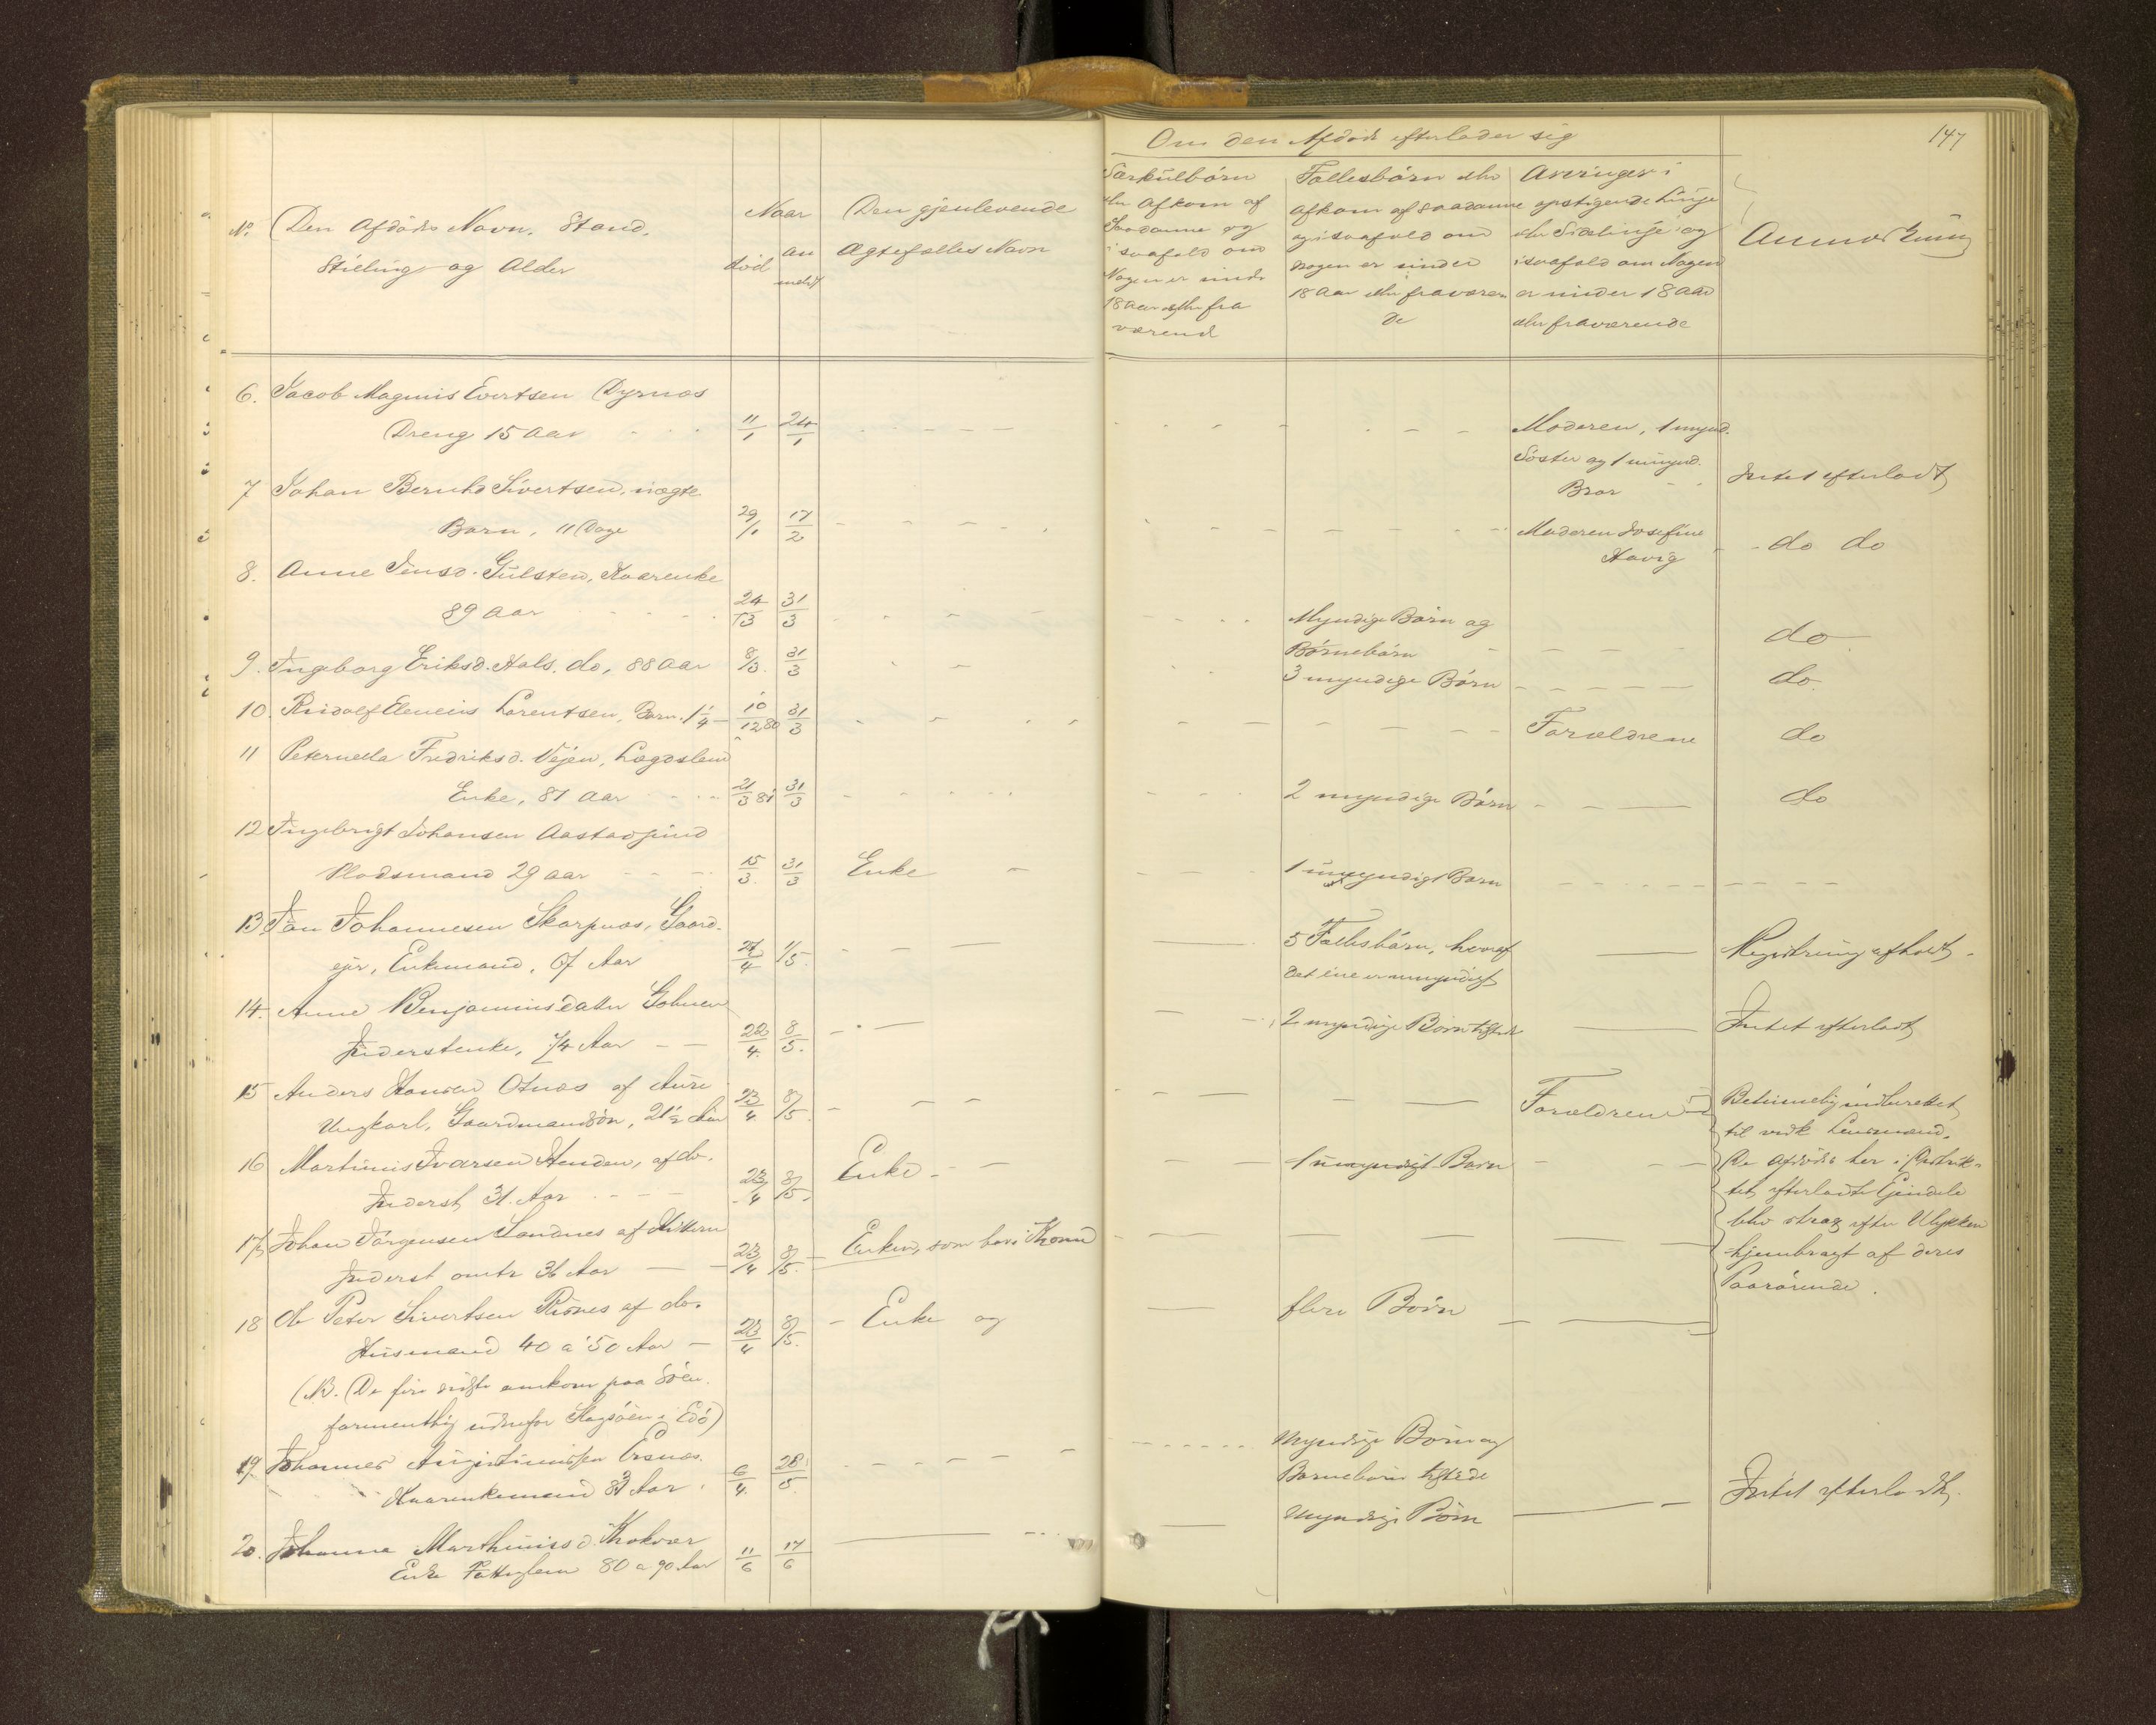 Om den Afdöde efterlader sig
147
No.
Den Afdödes Navn, Stand,
Stilling og Alder
Naar
död
an
meldt
Den gjenlevende
Ægtefælles Navn
Særkulbörn
eller Afkom af
Saadanne og
i saafald om
Nogen er under
18 Aar eller fra
værende
Fællesbörn eller
Afkom af Saadanne
og i saafald om
nogen er under
18 Aar eller fraværen
de
Arvinger i
opstigende Linje
eller Sidelinje og
i saafald om Nogen
er under 18 Aar
eller fraværende
Anmærkning
6. Jacob Magnus Evertsen Dyrnæs
Dreng 15 Aar 11/1 24/1 Moderen, 1 mynd.
Söster og 1 umynd.
Bror Intet efterladt
7 Johan Bernhd Sivertsen, uægte
Barn, 11 Dage 29/1 17/2 Moderen Josefine
Havig do do
8. Anne Jensd. Gulsten, Kaarenke
89 Aar 24/3 31/3 Myndige Börn og
Börnebörn do
9. Ingeborg Eriksd. Hals, do, 88 Aar 8/3. 31/3 3 myndige Börn do.
10. Rudolf Elenius Lorentsen, Barn 1 1/4 10/12 80 31/3 Forældrene do
11 Peternella Fredriksd. Vejen, Lægdslem
Enke, 81 Aar 21/3 81 31/3 2 myndige Börn do
12 Ingebrigt Johansen Aastadsund
Pladsmand 29 Aar 15/3. 31/3 Enke 1 umyndigt Barn
13 Jon Johannesen Skarpnæs, Gaard-
ejer, Enkemand, 67 Aar 27/4 1/5. 5 Fællesbörn, hvoraf
det ene er umyndigt Registrering afholdt.
14. Anne Benjaminsdatter Golmen
Inderstenke, 74 Aar 22/4. 8/5. 2 myndige Börn tilstede Intet efterladt
15 Anders Hansen Otnæs af Aure
Ungkarl, Gaardmandsön, 21 1/2 Aar 23/4 8/5. Forældrene
16 Martinus Ivarsen Henden, af do.
Inderst 31 Aar 23/4 8/5. Enke 1 umyndigt Barn
17 Johan Jörgensen Sandnes af Hitteren
Inderst omtr 36 Aar 23/4 8/5. Enken, som bor i
18 Ole Peter Sivertsen af do.
Husmand 40 à 50 Aar 23/4 8/5. Enke og flere Börn
Betimelig indberettet
til vedk Lensmand.
De Afdödes her i Distrik-
tet efterladte Ejendele
blev strax efter Ulykken
hjembragt af deres
Paarörende.
(NB. De fire sidste omkom paa Söen
formentlig udenfor i Edö)
19. Johannes Augustinussen
Kaarenkemand 83 Aar. 6/4. 28/5. Myndige Börn og
Börnebörn tilstede Intet efterladt.
20. Johanna Marthinusd.
Enke Fattiglem 80 a 90 Aar 11/6 17/6 Myndige Börn